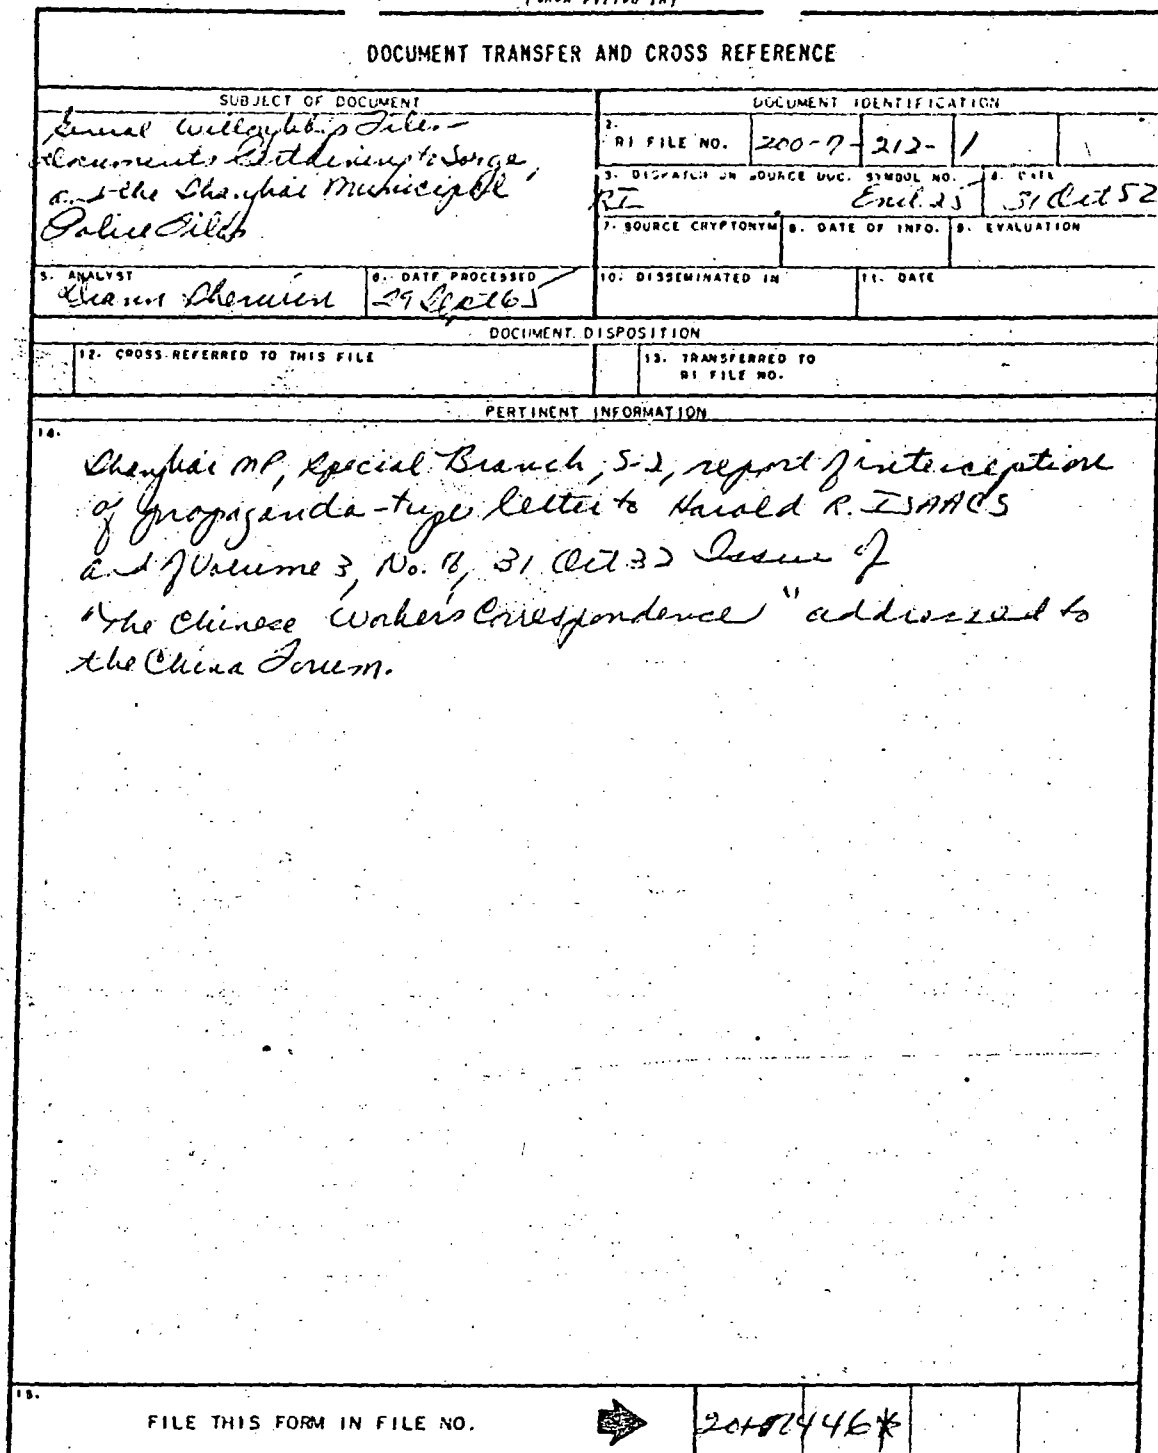 (When Filled In)
DOCUMENT TRANSFER AND CROSS REFERENCE
SUBJECT OF DOCUMENT
General Willoughby's Files-
documents Pertaining to Sorge,
and the Shanghai Municipal
Police Files
DOCUMENT IDENTIFICATION
2. RI FILE NO. 200-7-212-1
3. DISPATCH OR SOURCE DOC. SYMBOL NO. 4. DATE
RI Encl. 25 31 Oct 52
7. SOURCE CRYPTONYM 8. DATE OF INFO. 9. EVALUATION
5. ANALYST 6. DATE PROCESSED
29 Sept 65
10. DISSEMINATED IN 11. DATE
DOCUMENT DISPOSITION
12. CROSS REFERRED TO THIS FILE
13. TRANSFERRED TO
RI FILE NO.
PERTINENT INFORMATION
14.
Shanghai MP, Special Branch, S-2, report of interception
of propaganda-type letter to Harold R. ISAACS
and of Volume 3, No. 31 Oct 32 Issue of
"The Chinese Workers Correspondence" addressed to
the China Forum.
15.
FILE THIS FORM IN FILE NO.